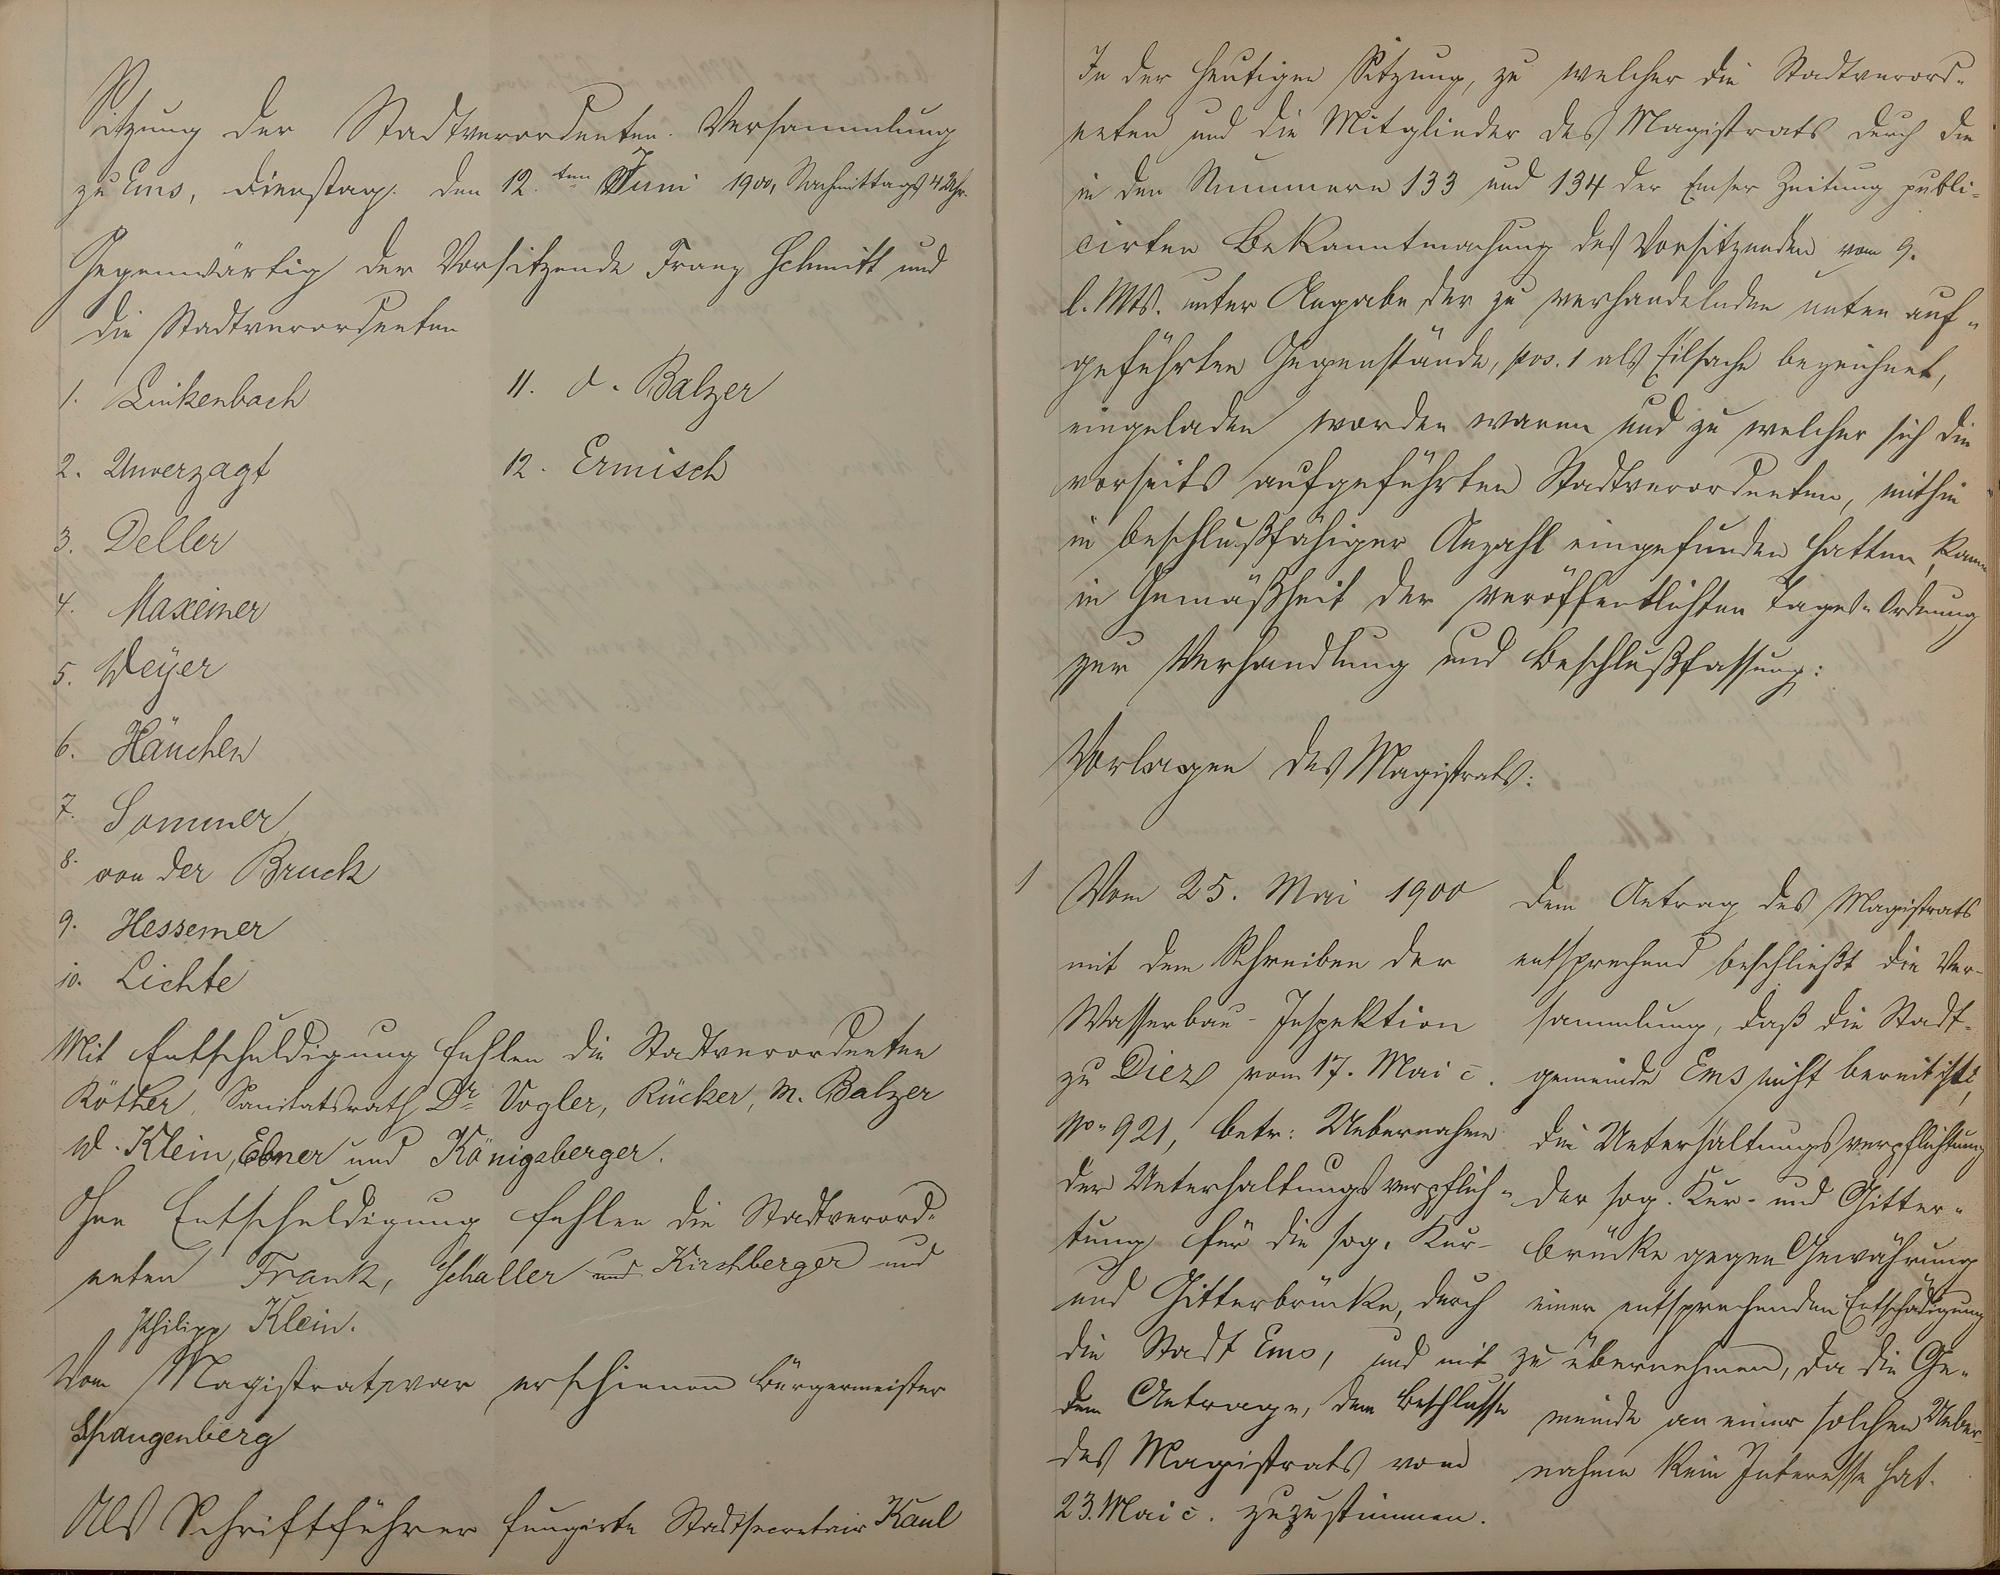 Sitzung der Stadtverordneten-Versammlung
zu Ems, Dienstag, den 12.ten Juni 1900, Nachmittags 4 Uhr.
Gegenwärtig der Vorsitzende Franz Schmitt und
die Stadtverordneten
1. Linkenbach
2. Unverzagt
3. Deller
4. Maxeiner
5. Weyer
6. Häuchen
7. Sommer
8. von der Bruck
9. Hessemer
10. Lichte
11. O. Balzer
12. Ermisch
Mit Entschuldigung fehlen die Stadtverordneten
Röther, Sanitätsrath Dr. Vogler, Rücker, M. Balzer
W. Klein, Ebner und Königsberger.
Ohne Entschuldigung fehlen die Stadtverord-
neten Frank, Schaller und Kirschberger und
Philipp Klein.
Vom Magistrat war erschienen Bürgermeister
Spangenberg
Als Schriftführer fungirte Stadtsecretair Kaul
In der heutigen Sitzung, zu welcher die Stadtverord-
neten und die Mitglieder des Magistrats durch die
in den Nummern 133 und 134 der Emser Zeitung publi-
cirten Bekanntmachung des Vorsitzenden vom 9.
l. Mts. unter Angabe der zu verhandelnden unten auf-
geführten Gegenstände, pos. 1 als Eilsache bezeichnet,
eingeladen worden waren und zu welcher sich die
vorseits aufgeführten Stadtverordneten, mithin
in beschlußfähiger Anzahl eingefunden hatten, kam
in Gemäßheit der veröffentlichten Tages-Ordnung
zur Verhandlung und Beschlußfassung:
Vorlagen des Magistrats:
1 Vom 25. Mai 1900
mit dem Schreiben der
Wasserbau-Inspektion
zu Diez vom 17. Mai c.
No. 921, betr: Uebernahme
der Unterhaltungsverpflich-
tung für die sog. Kur-
und Gitterbrücke, durch
die Stadt Ems, und mit
dem Antrage, dem Beschlusse
des Magistrats vom
23. Mai c. zuzustimmen.
Dem Antrag des Magistrats
entsprechend beschließt die Ver-
sammlung, daß die Stadt-
gemeinde Ems nicht bereit ist,
die Unterhaltungsverpflichtung
der sog. Kur- und Gitter-
brücke gegen Gewährung
einer entsprechenden Entschädigung
zu übernehmen, da die Ge-
meinde an einer solchen Ueber-
nahme kein Interesse hat.